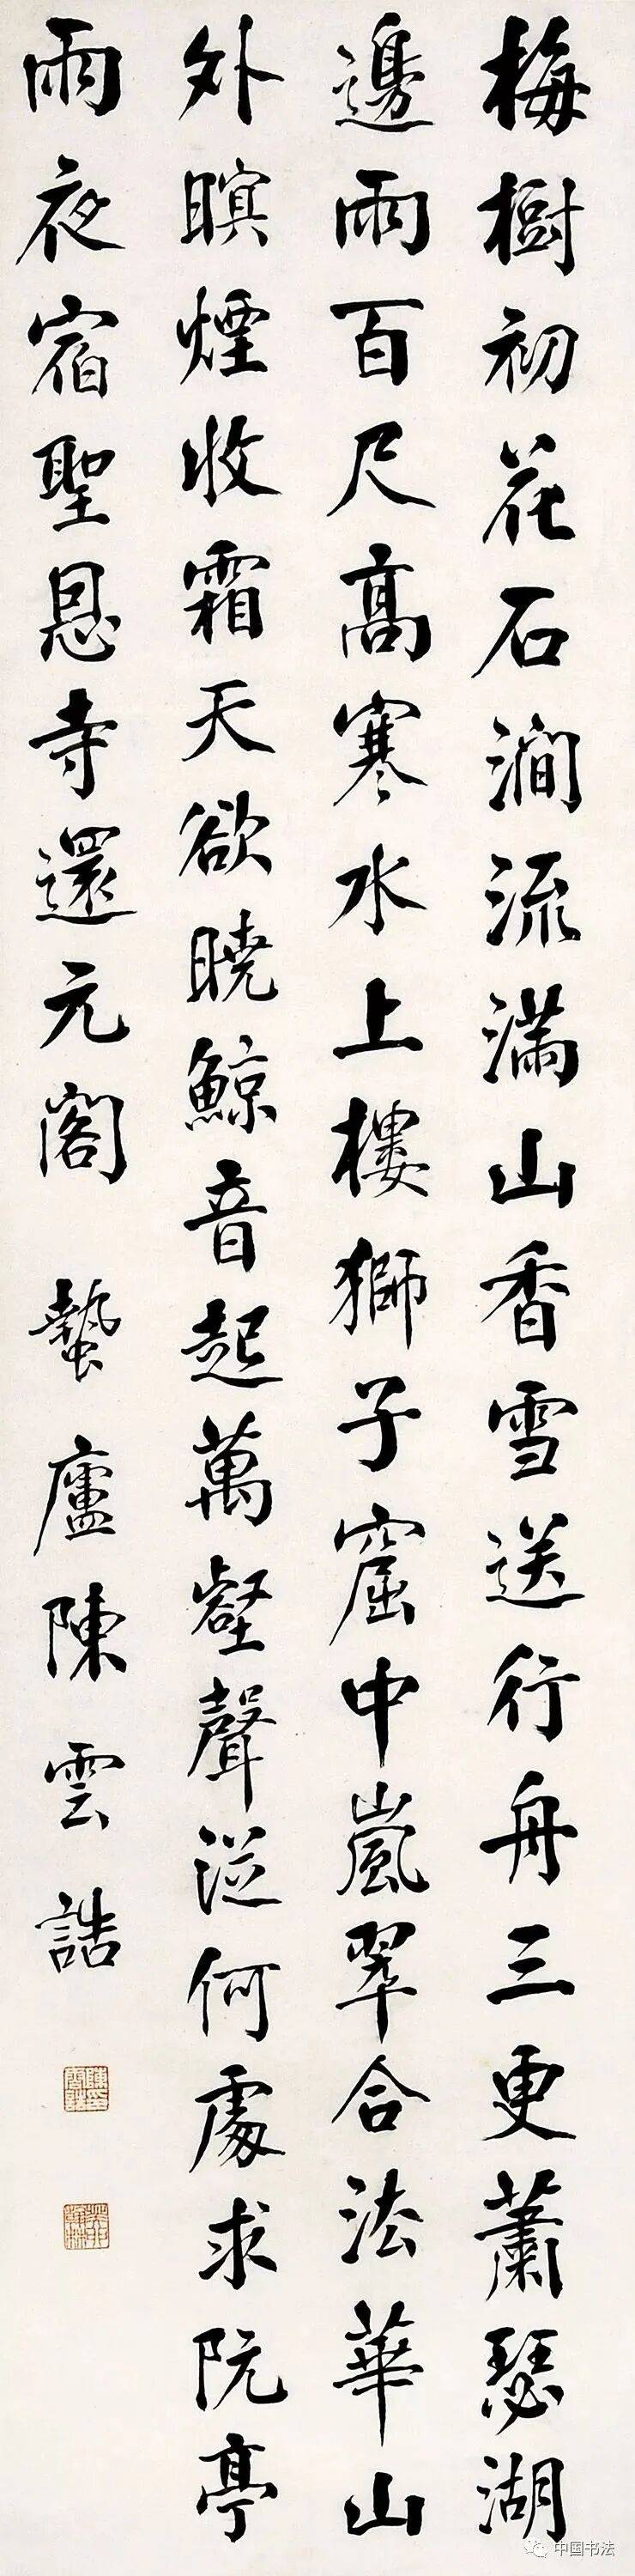 梅樹初花石澗流滿山香雪送行舟三更蕭瑟湖
邊雨百尺高寒水上樓獅子窟中嵐翠合法華山
外暝煙收霜天欲曉鯨音起萬壑聲從何處求阮亭
雨夜宿聖恩寺還元閣 蟄廬陳雲誥
中国书法